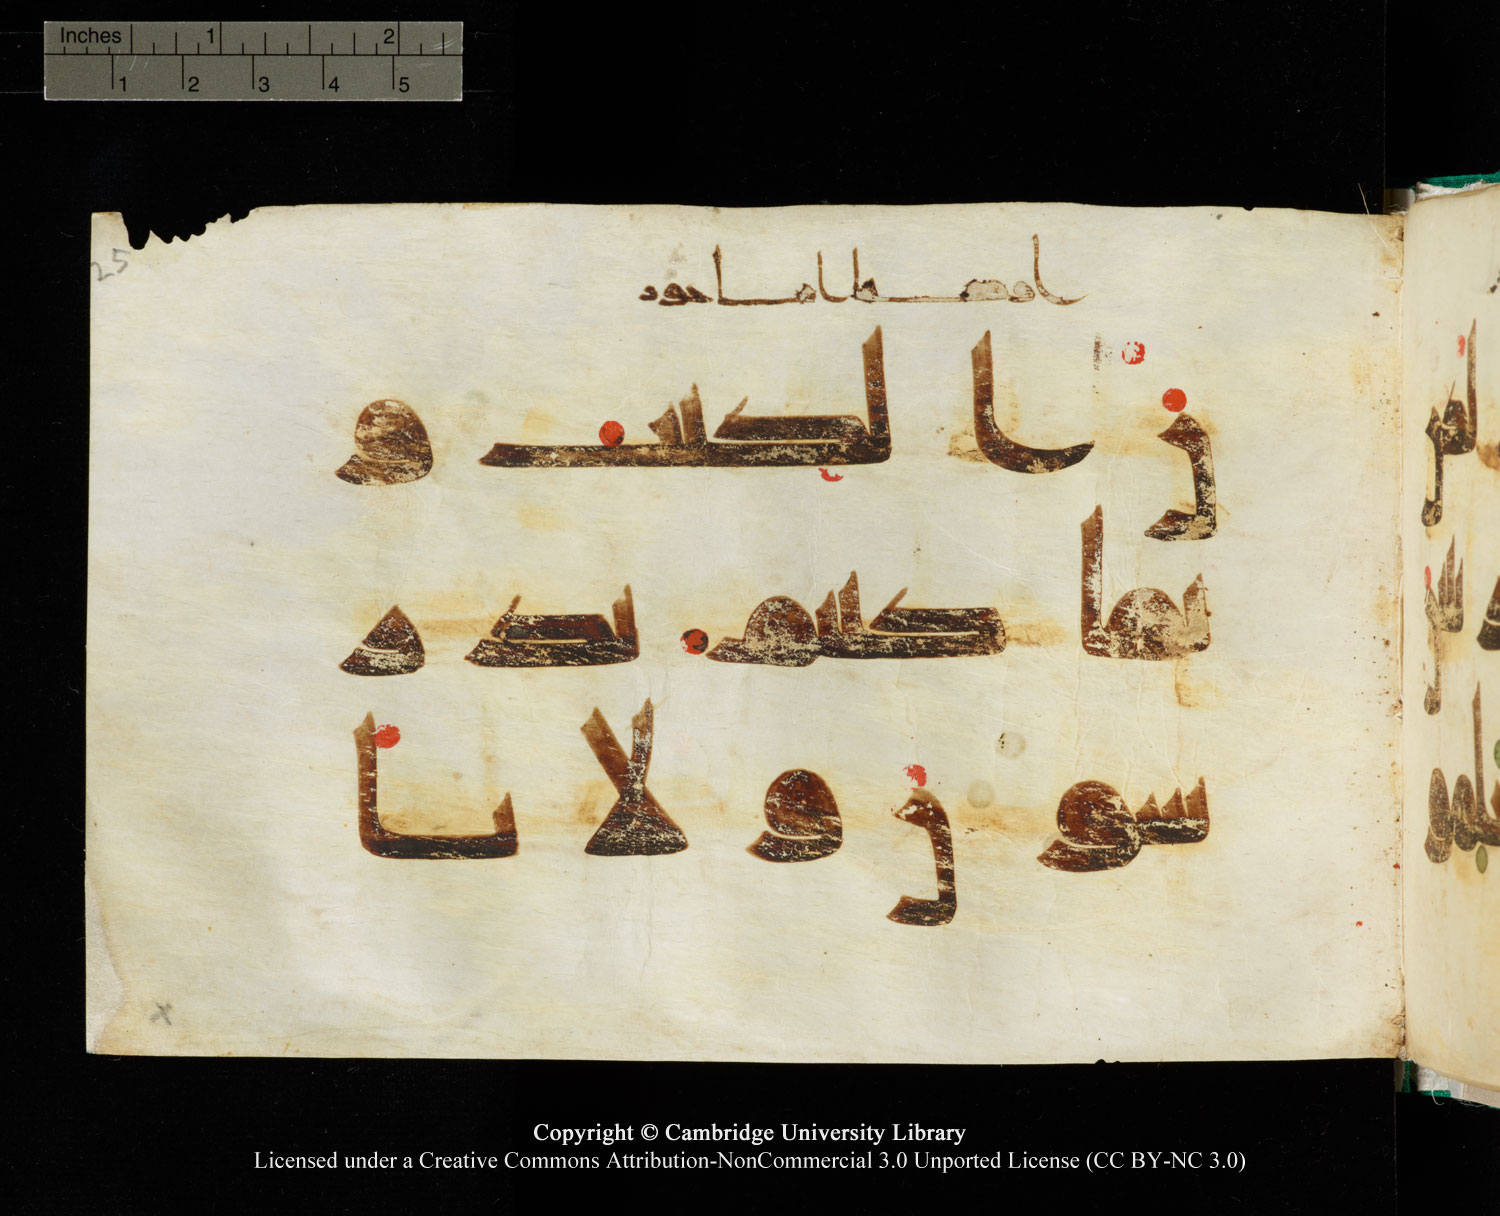 25
ن الكتب و
بما كنتم تدر
سون ولا يا
Inches 1 2
1 2 3 4 5
Copyright © Cambridge University Library
Licensed under a Creative Commons Attribution-NonCommercial 3.0 Unported License (CC BY-NC 3.0)